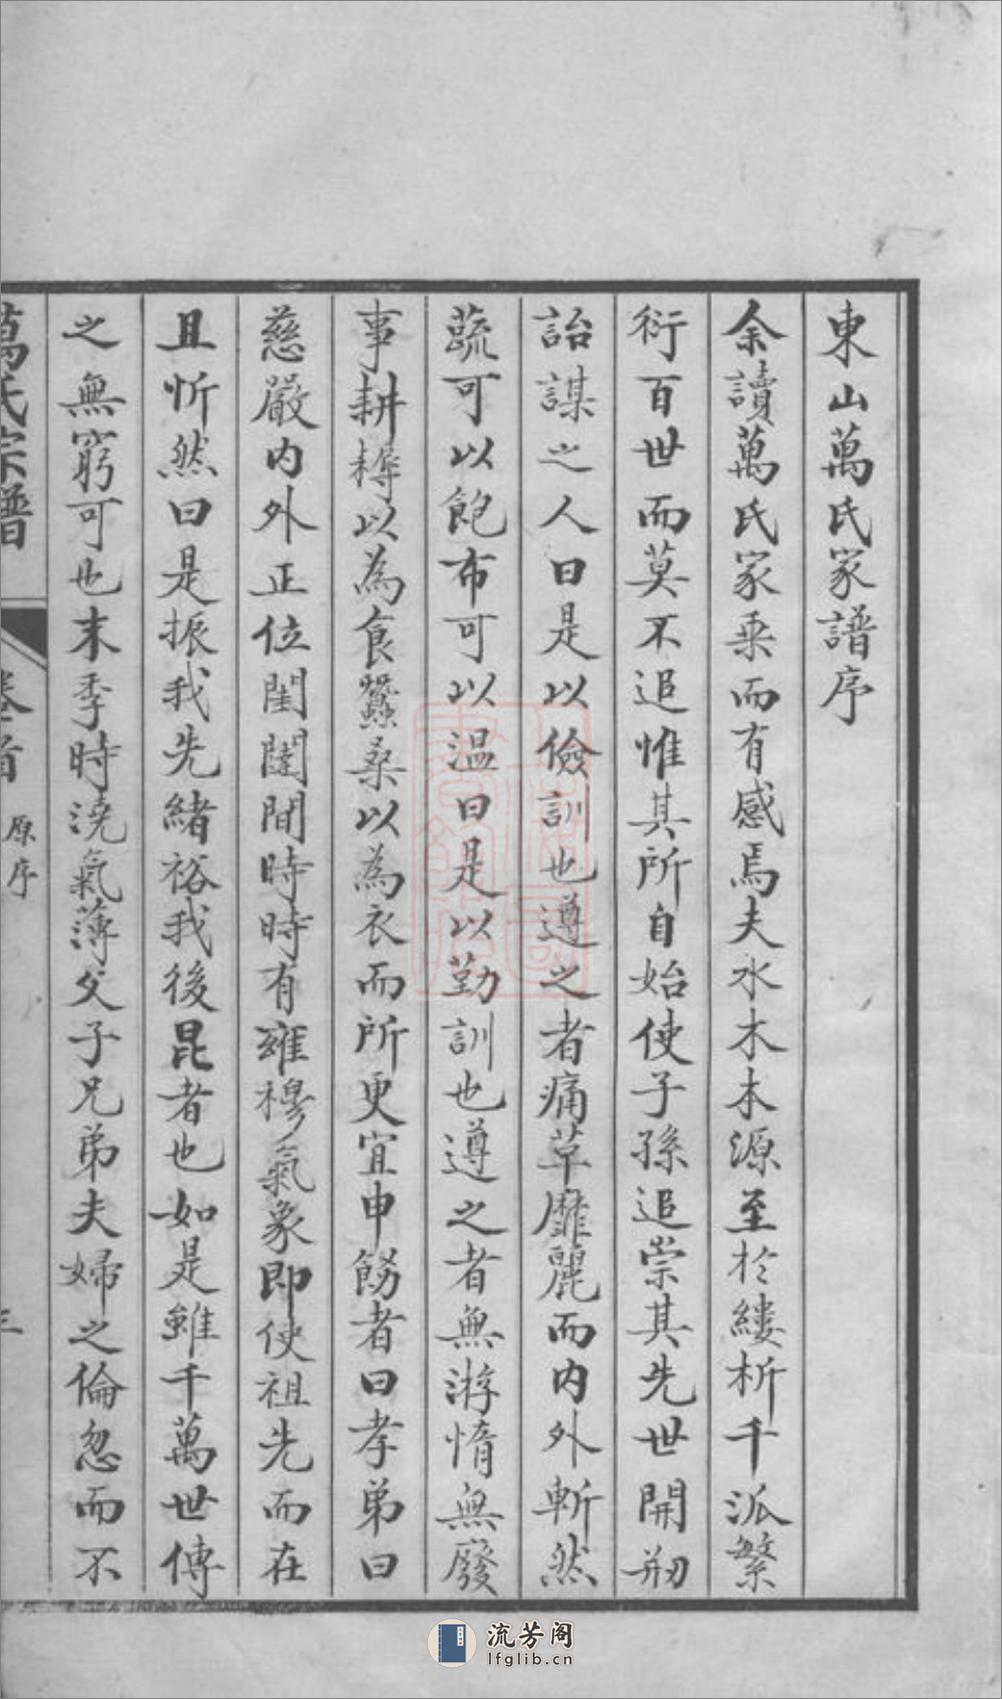 東山萬氏家譜序
余讀萬氏家乘而有感焉夫水木本源至於縷析千派繁
衍百世而莫不追惟其所自始使子孫追崇其先世開剏
詒謀之人曰是以儉訓也遵之者痛革靡麗而內外斬然
蔬可以飽布可以温曰是以勤訓也遵之者無游惰無廢
事耕耨以為食蠶桑以為衣而所更宜申飭者曰孝弟曰
慈嚴內外正位閨閫間時時有雍穆氣象即使祖先而在
且忻然曰是振我先緒裕我後昆者也如是雖千萬世傳
之無窮可也末季時澆氣薄父子兄弟夫婦之倫忽而不
萬氏宗譜
卷首 原序
三
流芳阁
lfglib.cn